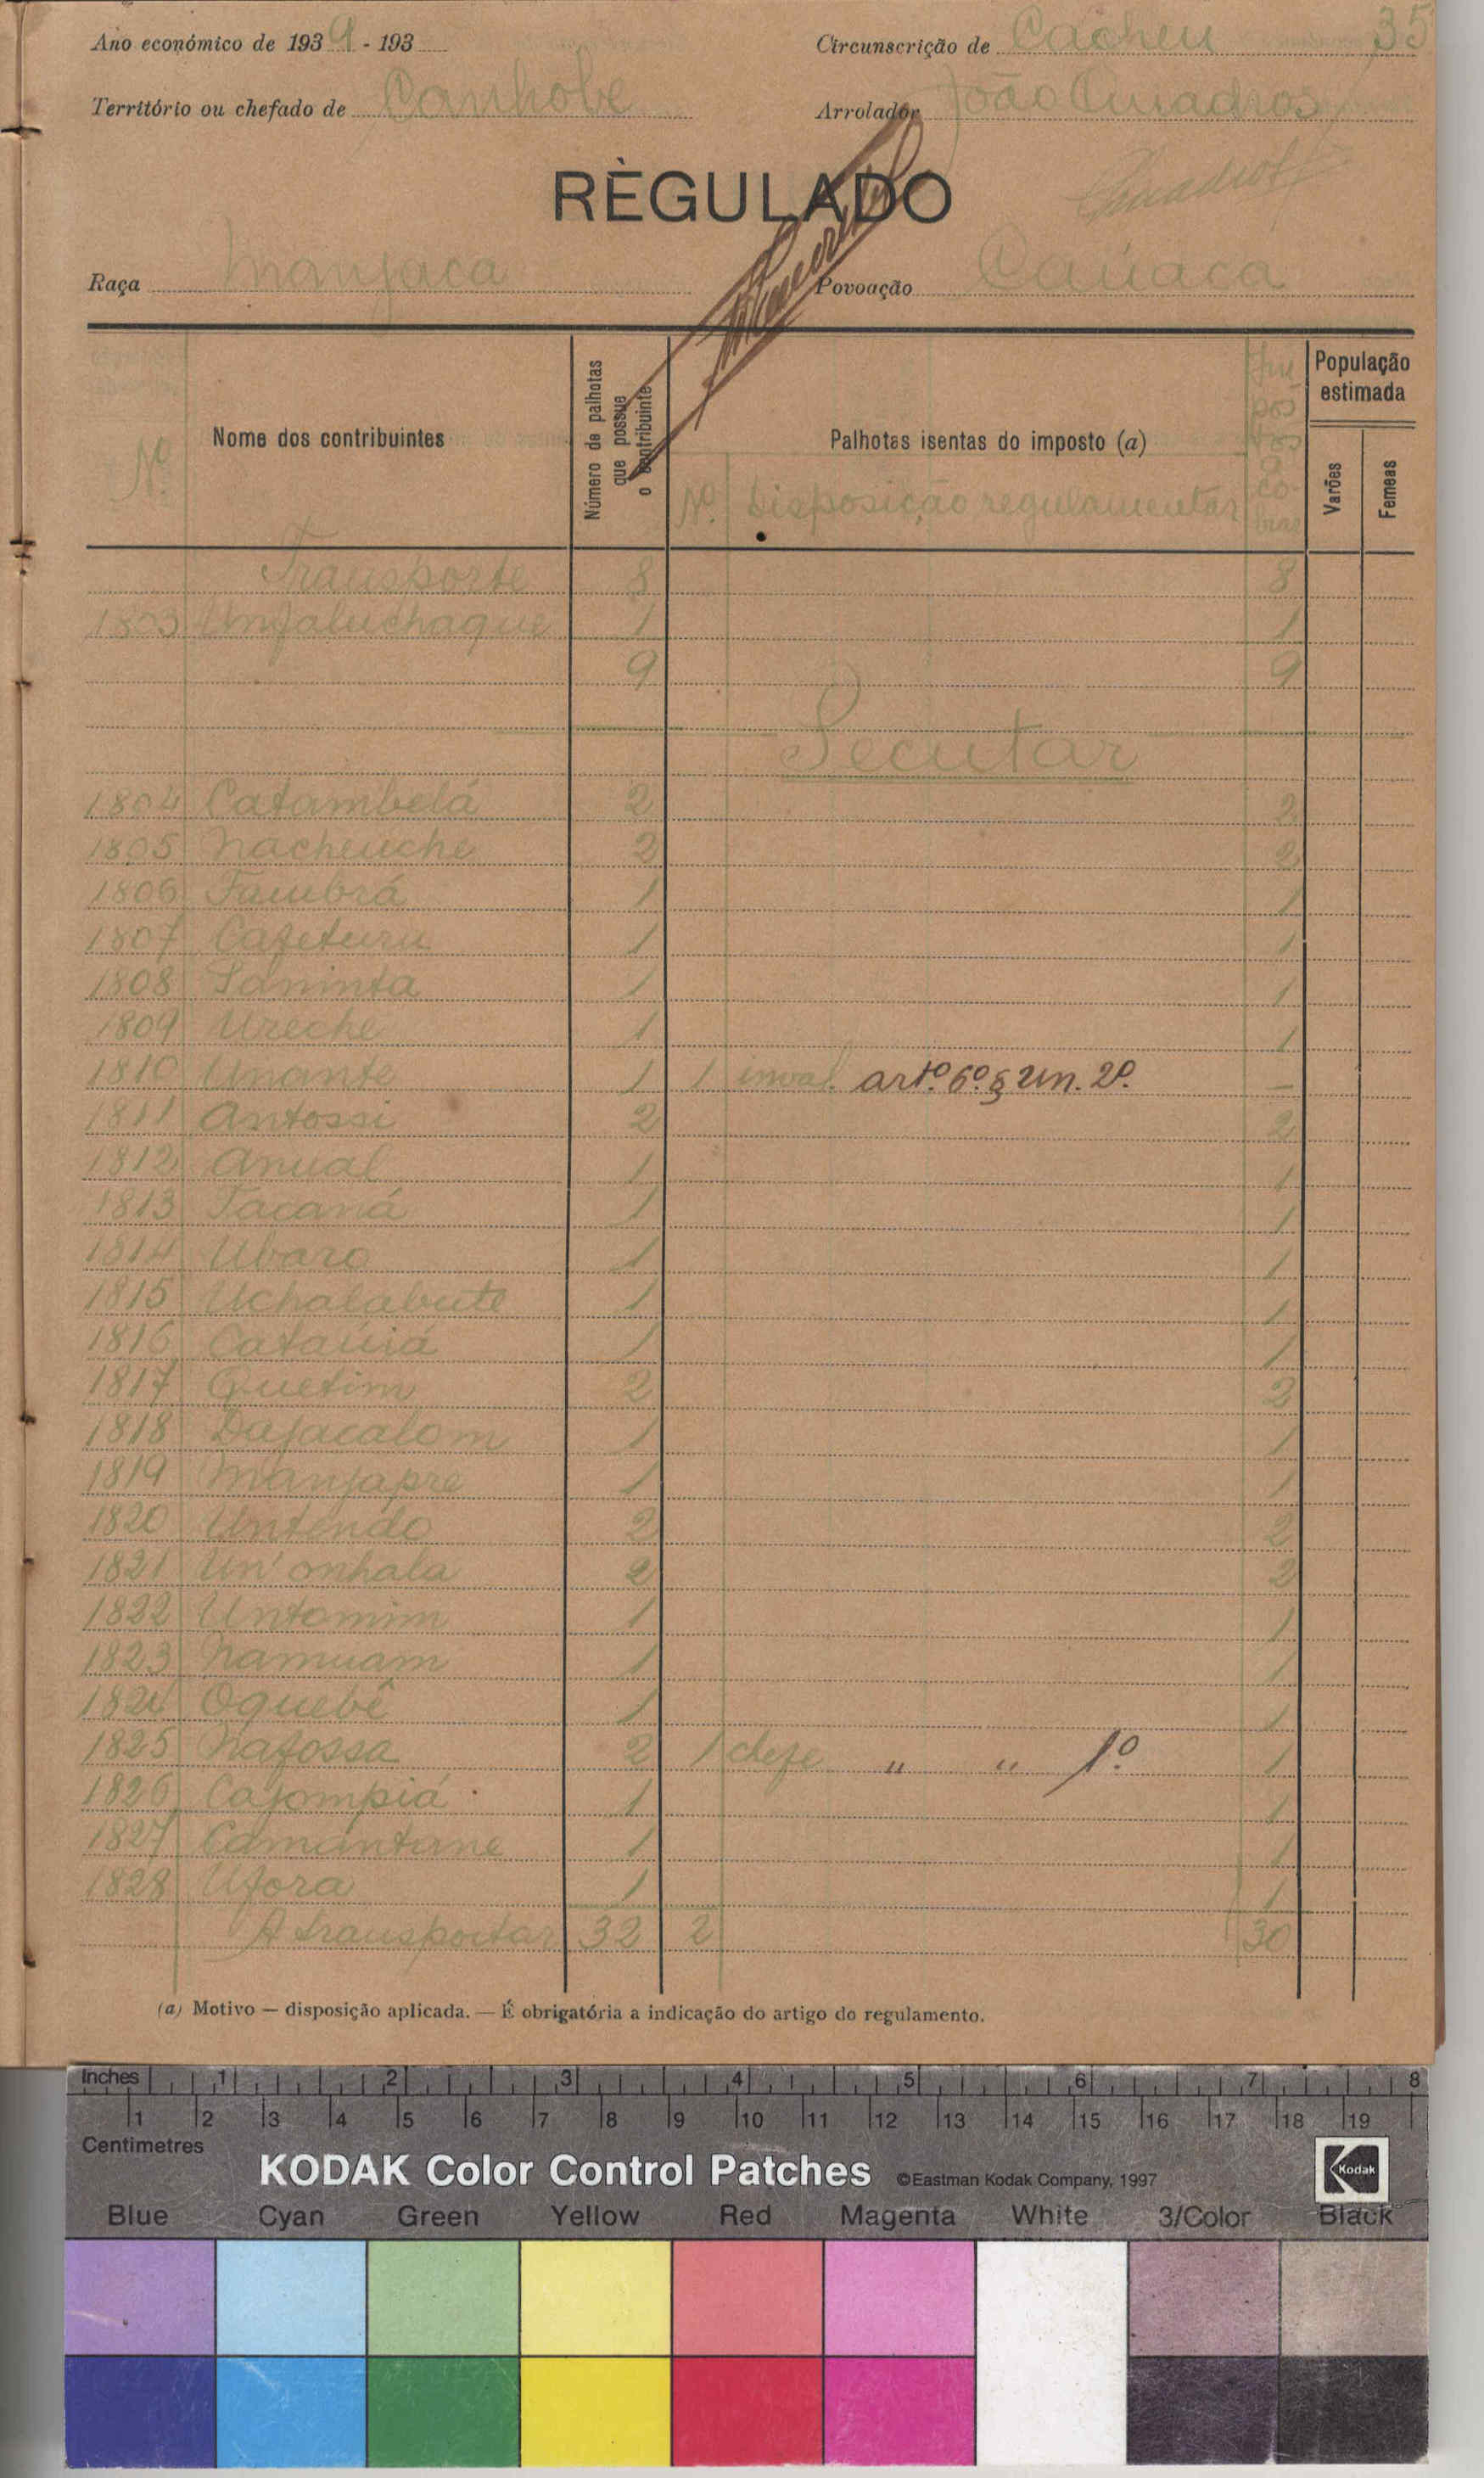 Ano económico de 1939 - 193 Circunscrição de Cacheu 35
Território ou chefado de Canhobe Arrolador João Quadros
RÈGULADO Quadros
Raça Manjaca Povoação Caúaca
Nº Nome dos contribuintes Número de palhotas que possue o contribuinte Palhotas isentas do imposto (a) Nº Disposição regulamentar Impostos a cobrar População estimada Varões Femeas
Transporte 8 8
1803 Unjaluchaque 1 1
9 9
Pecutar
1804 Catambelá 2 2
1805 Nacheuche 2 2
1806 Faubrá 1 1
1807 Cajeturu 1 1
1808 Saninta 1 1
1809 Ureche 1 1
1810 Unante 1 1 inval. artº. 6º. § Un. 2º. —
1811 Antossi 2 2
1812 Anual 1 1
1813 Tacaná 1 1
1814 Ubaro 1 1
1815 Uchalabute 1 1
1816 Cataúiá 1 1
1817 Quetim 2 2
1818 Dajacalom 1 1
1819 Manjapre 1 1
1820 Untendo 2 2
1821 Un'onhala 2 2
1822 Untomim 1 1
1823 Namuam 1 1
1824 Oquebê 1 1
1825 Nafossa 2 1 chefe " " 1º. 1
1826 Cajompiá 1 1
1827 Camantane 1 1
1828 Ufora 1 1
A transportar 32 2 30
(a) Motivo — disposição aplicada. — É obrigatória a indicação do artigo do regulamento.
Inches 1 2 3 4 5 6 7 8
1 2 3 4 5 6 7 8 9 10 11 12 13 14 15 16 17 18 19
Centimetres
KODAK Color Control Patches ©Eastman Kodak Company, 1997 Kodak
Blue Cyan Green Yellow Red Magenta White 3/Color Black